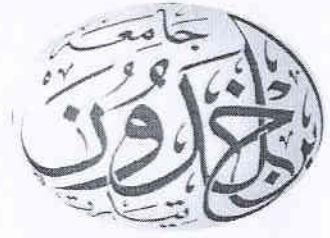 جَامِعَة
ابن خَلدُون
تيارت